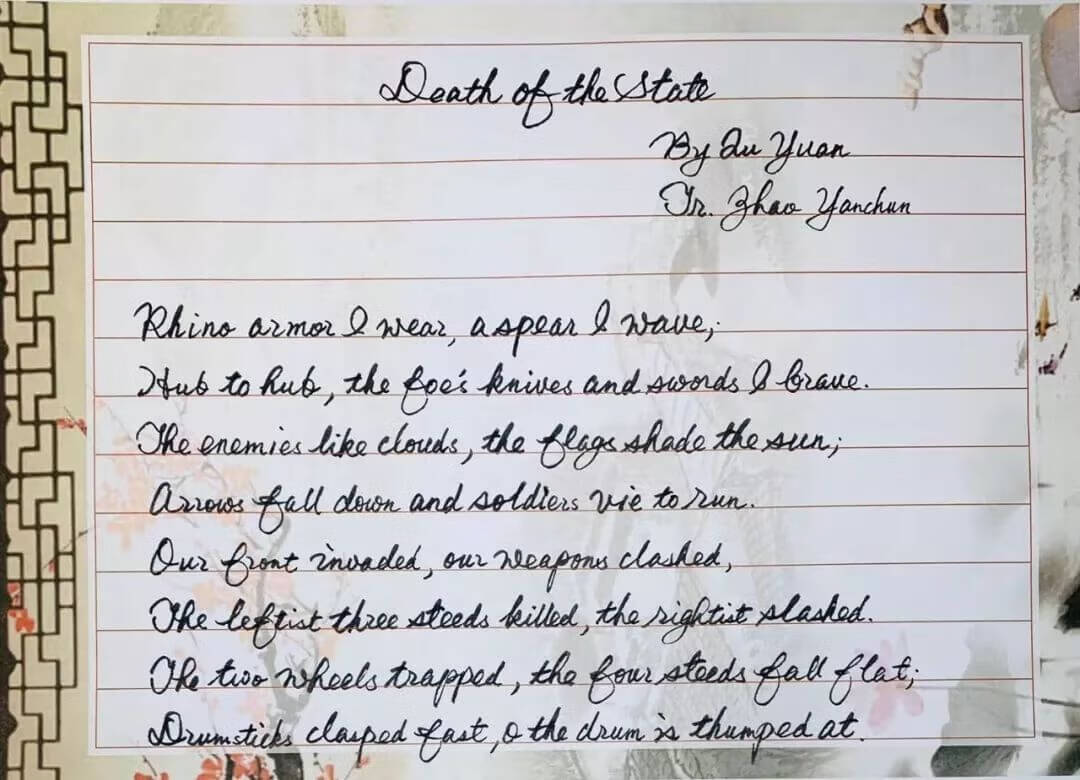 Death of the State
By Qu Yuan
Tr. Zhao Yanchun
Rhino armor I wear, a spear I wave;
Hub to hub, the foe's knives and swords I brave.
The enemies like clouds, the flags shade the sun;
Arrows fall down and soldiers vie to run.
Our front invaded, our weapons clashed,
The leftist three steeds killed, the rightist slashed.
The two wheels trapped, the four steeds fall flat;
Drumsticks clasped fast, o the drum is thumped at.